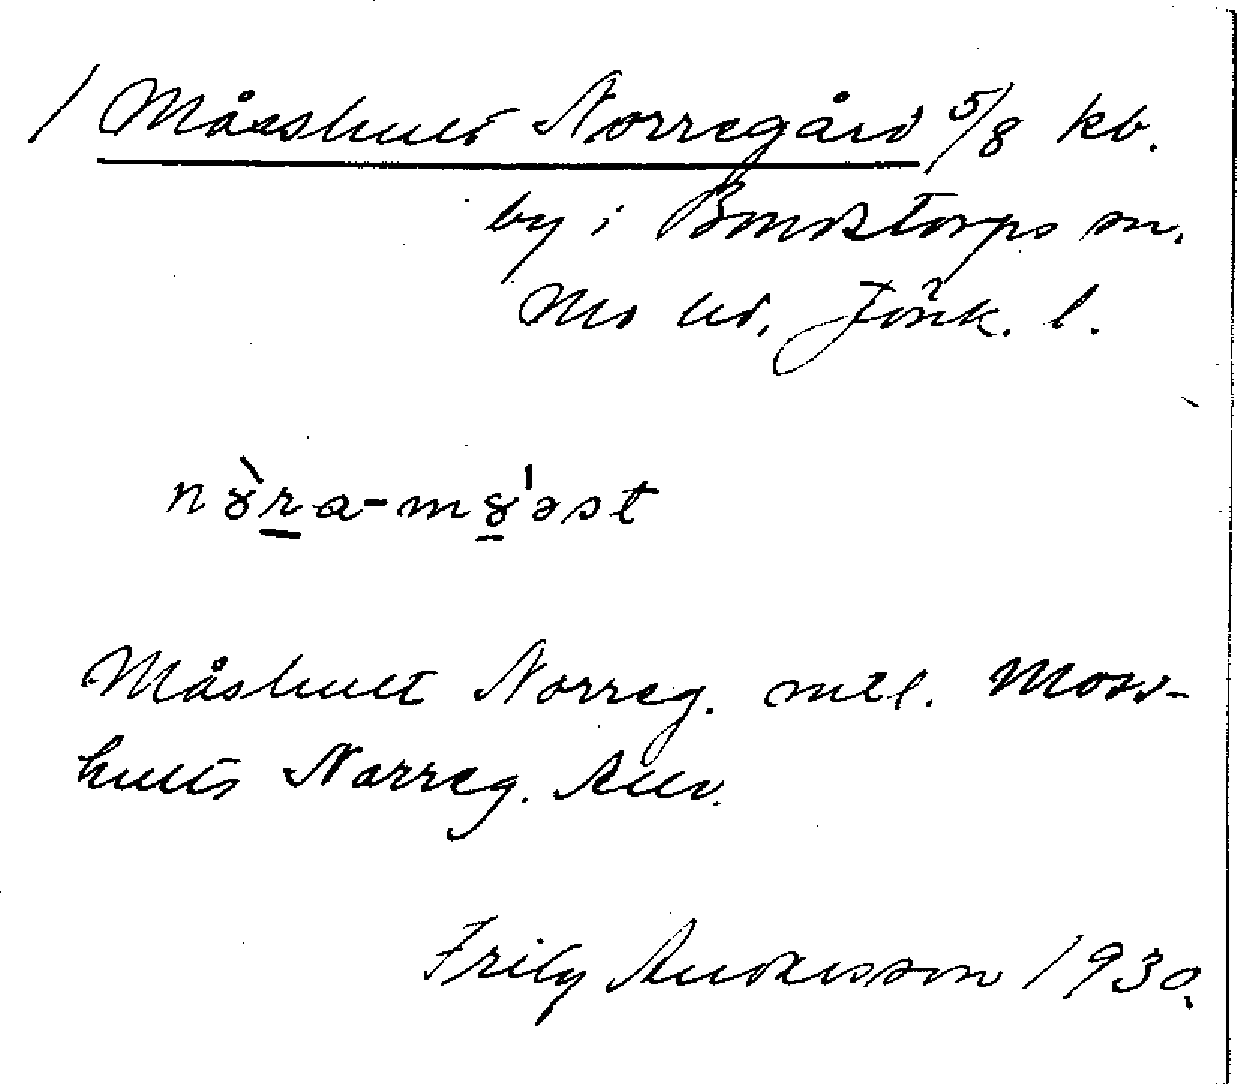 / Måsshult Norregård 5/8 kb.
by i Bondstorps sn.
Mo hd. Jönk. l.
nɤ̀ra-mɤ̱'əst
Måshult Norreg. mtl. Moss-
hults Norreg. Allm.
Frity Andersson 1930.